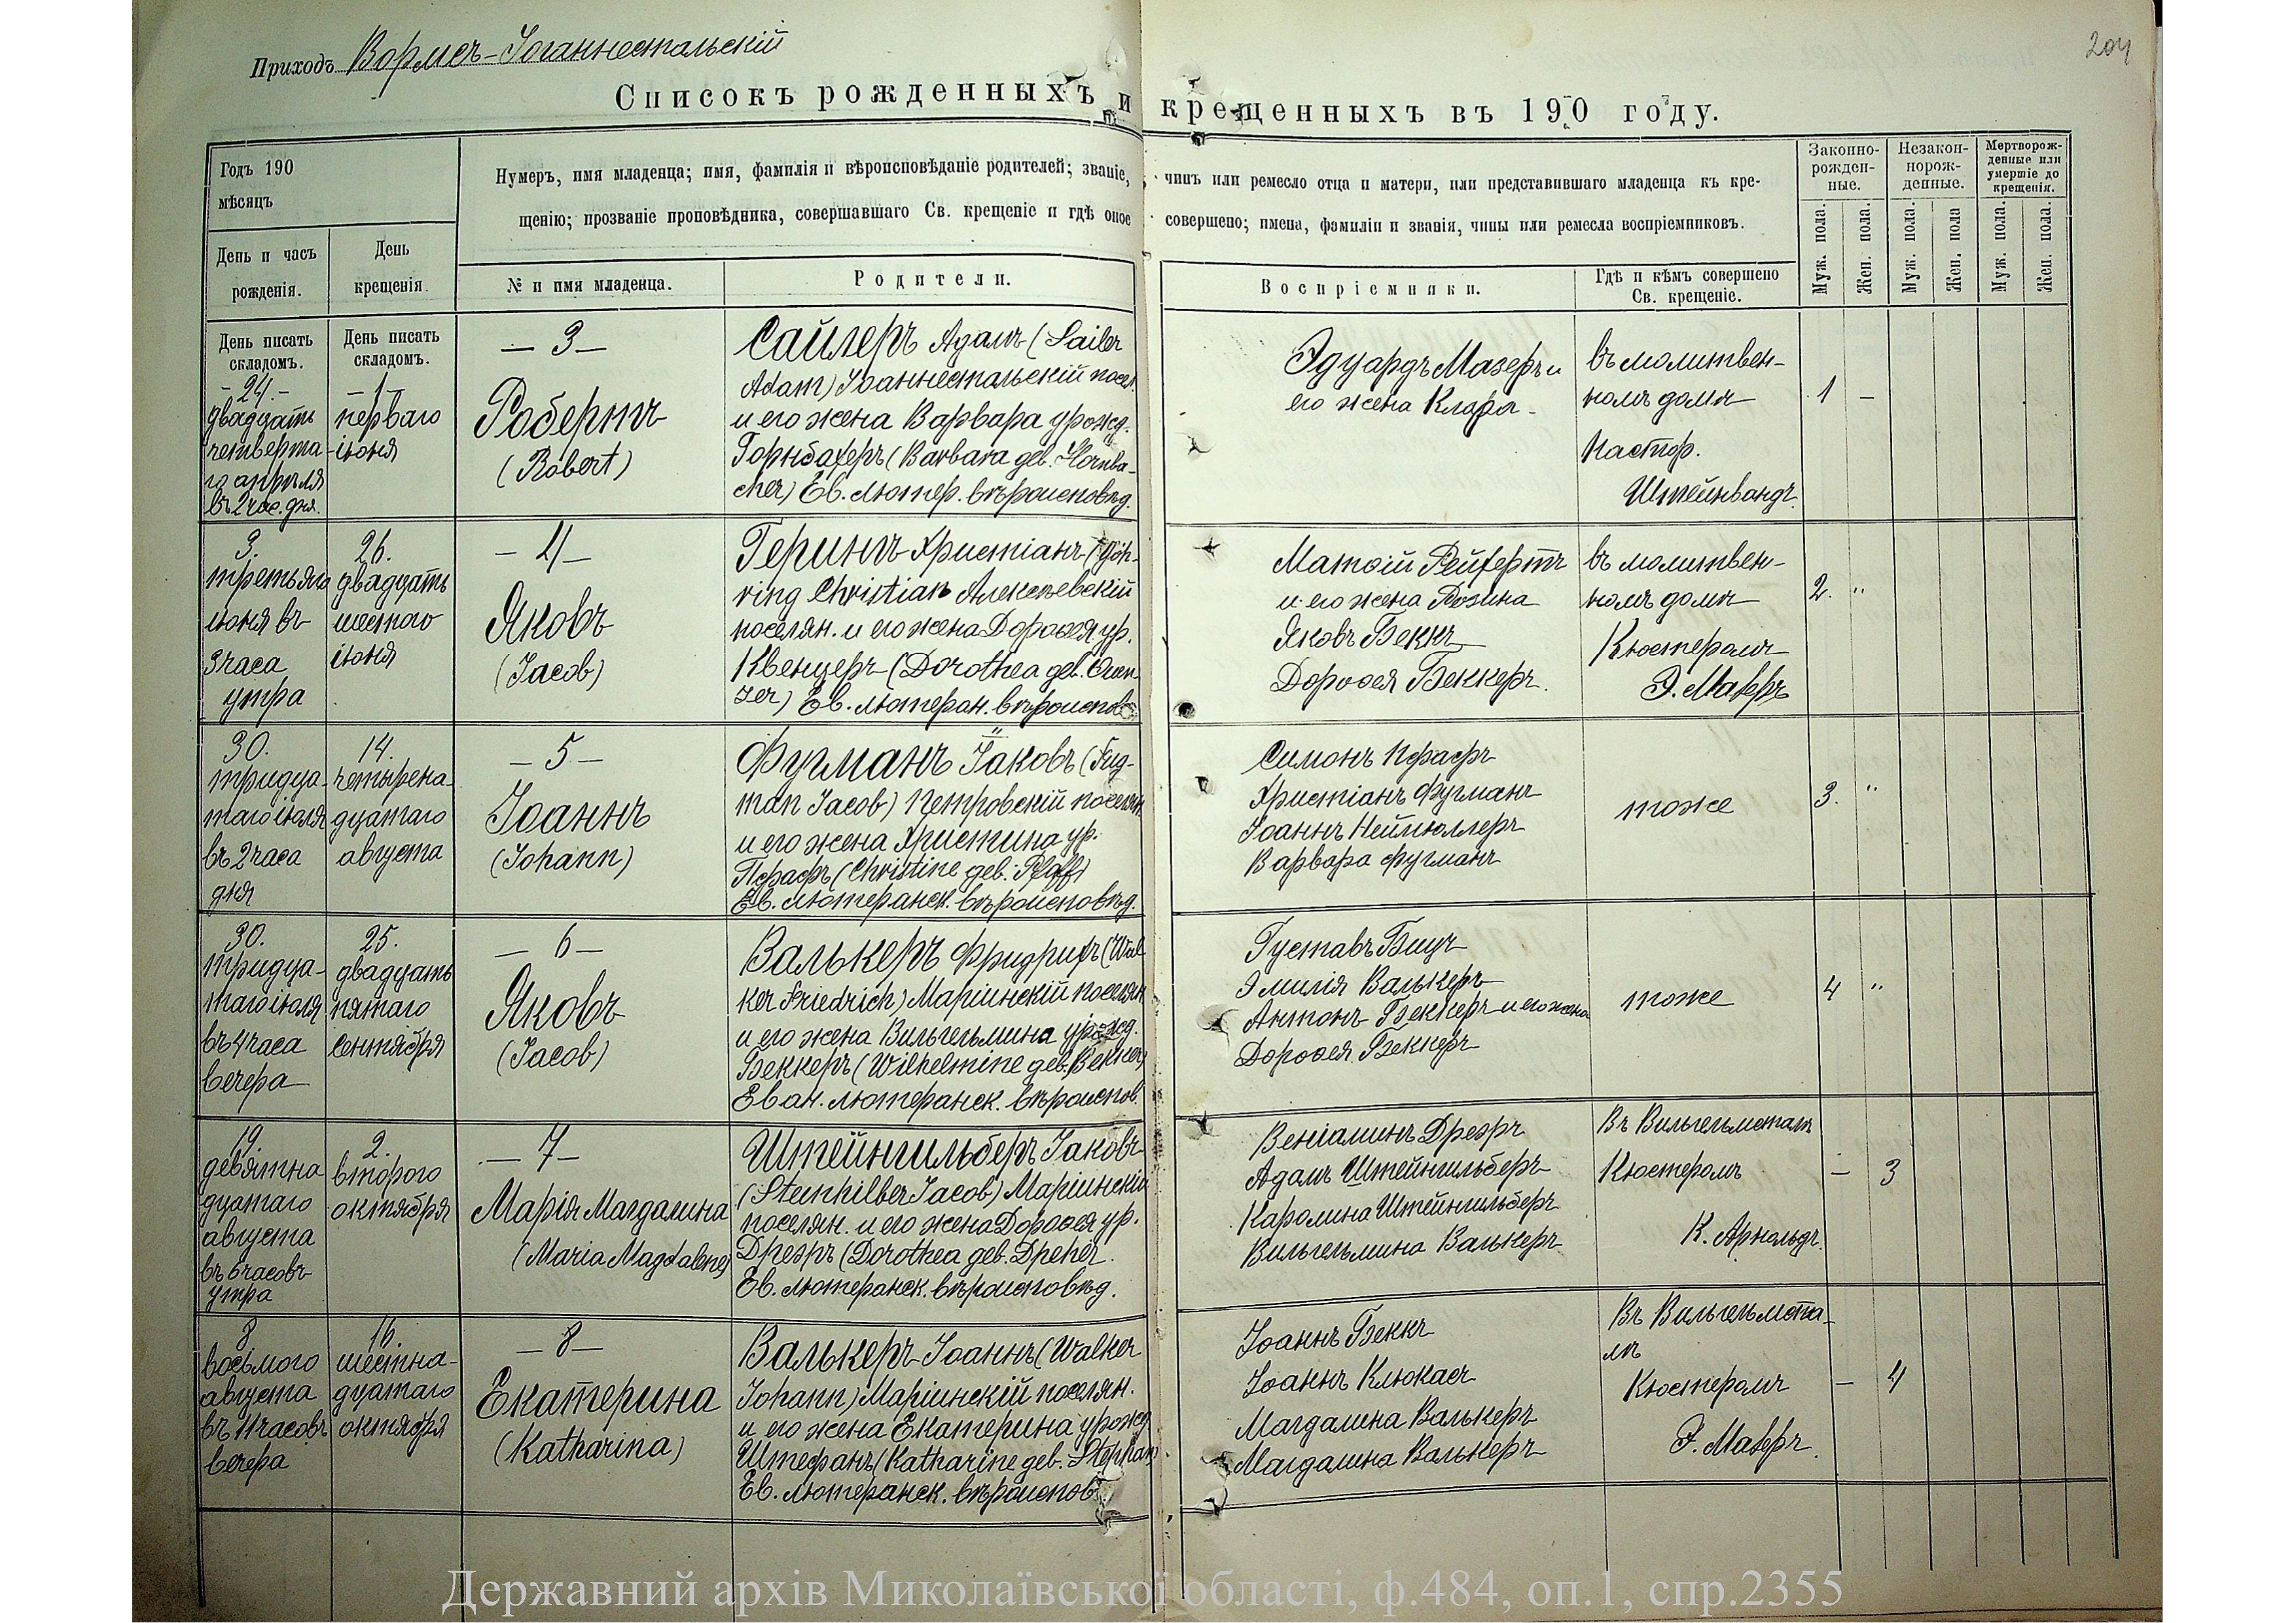 Приходъ Вормсъ-Іоганнестальскій
204
Списокъ рожденныхъ и крещенныхъ въ 190 году.
Годъ 190
мѣсяцъ
День и часъ
рожденія.
День
крещенія.
Нумеръ, имя младенца; имя, фамилія и вѣроисповѣданіе родителей; званіе, чинъ или ремесло отца и матери, или представившаго младенца къ кре-
щенію; прозваніе проповѣдника, совершавшаго Св. крещеніе и гдѣ оное совершено; имена, фамиліи и званія, чины или ремесла воспріемниковъ.
№ и имя младенца.
Родители.
Воспріемники.
Гдѣ и кѣмъ совершено
Св. крещеніе.
Законно-
рожден-
ные.
Незакон-
норож-
денные.
Мертворож-
денные или
умершіе до
крещенія.
Муж. пола.
Жен. пола.
Муж. пола.
Жен. пола
Муж. пола.
Жен. пола.
День писать
складомъ.
День писать
складомъ.
-24.-
двадцать
четверта-
го апрѣля
въ 2 час. дня.
-1-
перваго
іюня
-3-
Робертъ
(Robert)
Сайлеръ Адамъ (Sailer
Adam) Іоаннестальскій посел.
и его жена Варвара урожд.
Горнбахеръ (Barbara geb. Hornba-
cher) Ев. лютер. вѣроисповѣд.
Эдуардъ Мазеръ и
его жена Клара -
въ молитвен-
номъ домѣ
Пастор.
Штейнвандъ.
1 -
3.
третьяго
іюня въ
3 часа
утра
26.
двадцать
шестого
іюня
-4-
Яковъ
(Jacob)
Герингъ Христіанъ (Göh-
ring Christian Алексѣевскій
поселян. и его жена Дороѳея ур.
Квенцеръ (Dorothea geb. Quen-
zer) Ев. лютеран. вѣроиспов.
Матѳій Рейхертъ
и его жена Розина
Яковъ Беккъ
Дороѳея Беккеръ.
въ молитвен-
номъ домѣ
Кюстеромъ
Э. Маберъ
2. "
30.
тридца-
таго іюля
въ 2 часа
дня
14.
четырена-
дцатаго
августа
-5-
Іоаннъ
(Johann)
Фугманъ Іаковъ (Fug-
man Jacob) Петровскій поселян.
и его жена Христина ур.
Пфафъ (Christine geb. Pfaff)
Ев. лютеранск. вѣроисповѣд.
Симонъ Пфафъ
Христіанъ Фугманъ
Іоаннъ Неймюллеръ
Варвара Фугманъ
тоже
3. "
30.
тридца-
таго іюля
въ 4 часа
вечера
25.
двадцать
пятаго
сентября
-6-
Яковъ
(Jacob)
Валькеръ Фридрихъ (Wal-
ker Friedrich) Маріинскій поселян.
и его жена Вильгельмина урожд.
Беккеръ (Wilhelmine geb. Bekker)
Еван. лютеранск. вѣроиспов.
Густавъ Бицъ
Эмилія Валькеръ
Антонъ Беккеръ и его жена
Дороѳея Беккеръ
тоже
4 "
19.
девятна
дцатаго
августа
въ 6 часовъ
утра
2.
второго
октября
-7-
Марія Магдалина
(Maria Magdalene)
Штейнгильберъ Іаковъ
(Steinhilber Jacob) Маріинскій
поселян. и его жена Дороѳея ур.
Дреэръ (Dorothea geb. Dreher.
Ев. лютеранск. вѣроисповѣд.
Веніаминъ Дреэръ
Адамъ Штейнгильберъ
Каролина Штейнгильберъ
Вильгельмина Валькеръ
Въ Вильгельмсталѣ
Кюстеромъ
К. Арнольдъ.
- 3
8
восьмого
августа
въ 11 часовъ
вечера
16.
шестна-
дцатаго
октября
-8-
Екатерина
(Katharina)
Валькеръ Іоаннъ (Walker
Johann) Маріинскій поселян.
и его жена Екатерина урожд.
Штефанъ (Katharine geb. Stephan)
Ев. лютеранск. вѣроиспов.
Іоаннъ Беккъ
Іоаннъ Клюкасъ
Магдалина Валькеръ
Магдалина Валькеръ
Въ Вильгельмста-
лѣ
Кюстеромъ
Э. Маберъ.
- 4
Державний архів Миколаївської області, ф.484, оп.1, спр.2355